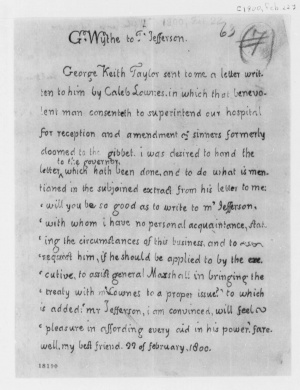 G. Wythe to T. Jefferson.
63
George Keith Taylor sent to me a letter writ-
ten to him by Caleb Lownes, in which that benevo-
lent man consenteth to superintend our hospital
for reception and amendment of sinners formerly
doomed to the gibbet. i was desired to hand the
to the governor,
letter, which hath been done, and to do what is men-
tioned in the subjoined extract from his letter to me:
' will you be so good as to write to mr Jefferson,
' with whom i have no personal acquaintance, stat-
' ing the circumstances of this business, and to
' request him, if he should be applied to by the exe-
' cutive, to assist general Marshall in bringing the
' treaty with mr Lownes to a proper issue.' to which
is added: mr Jefferson, i am convinced, will feel
' pleasure in affording every aid in his power. fare-
well, my best friend. 27 of february, 1800.
18190